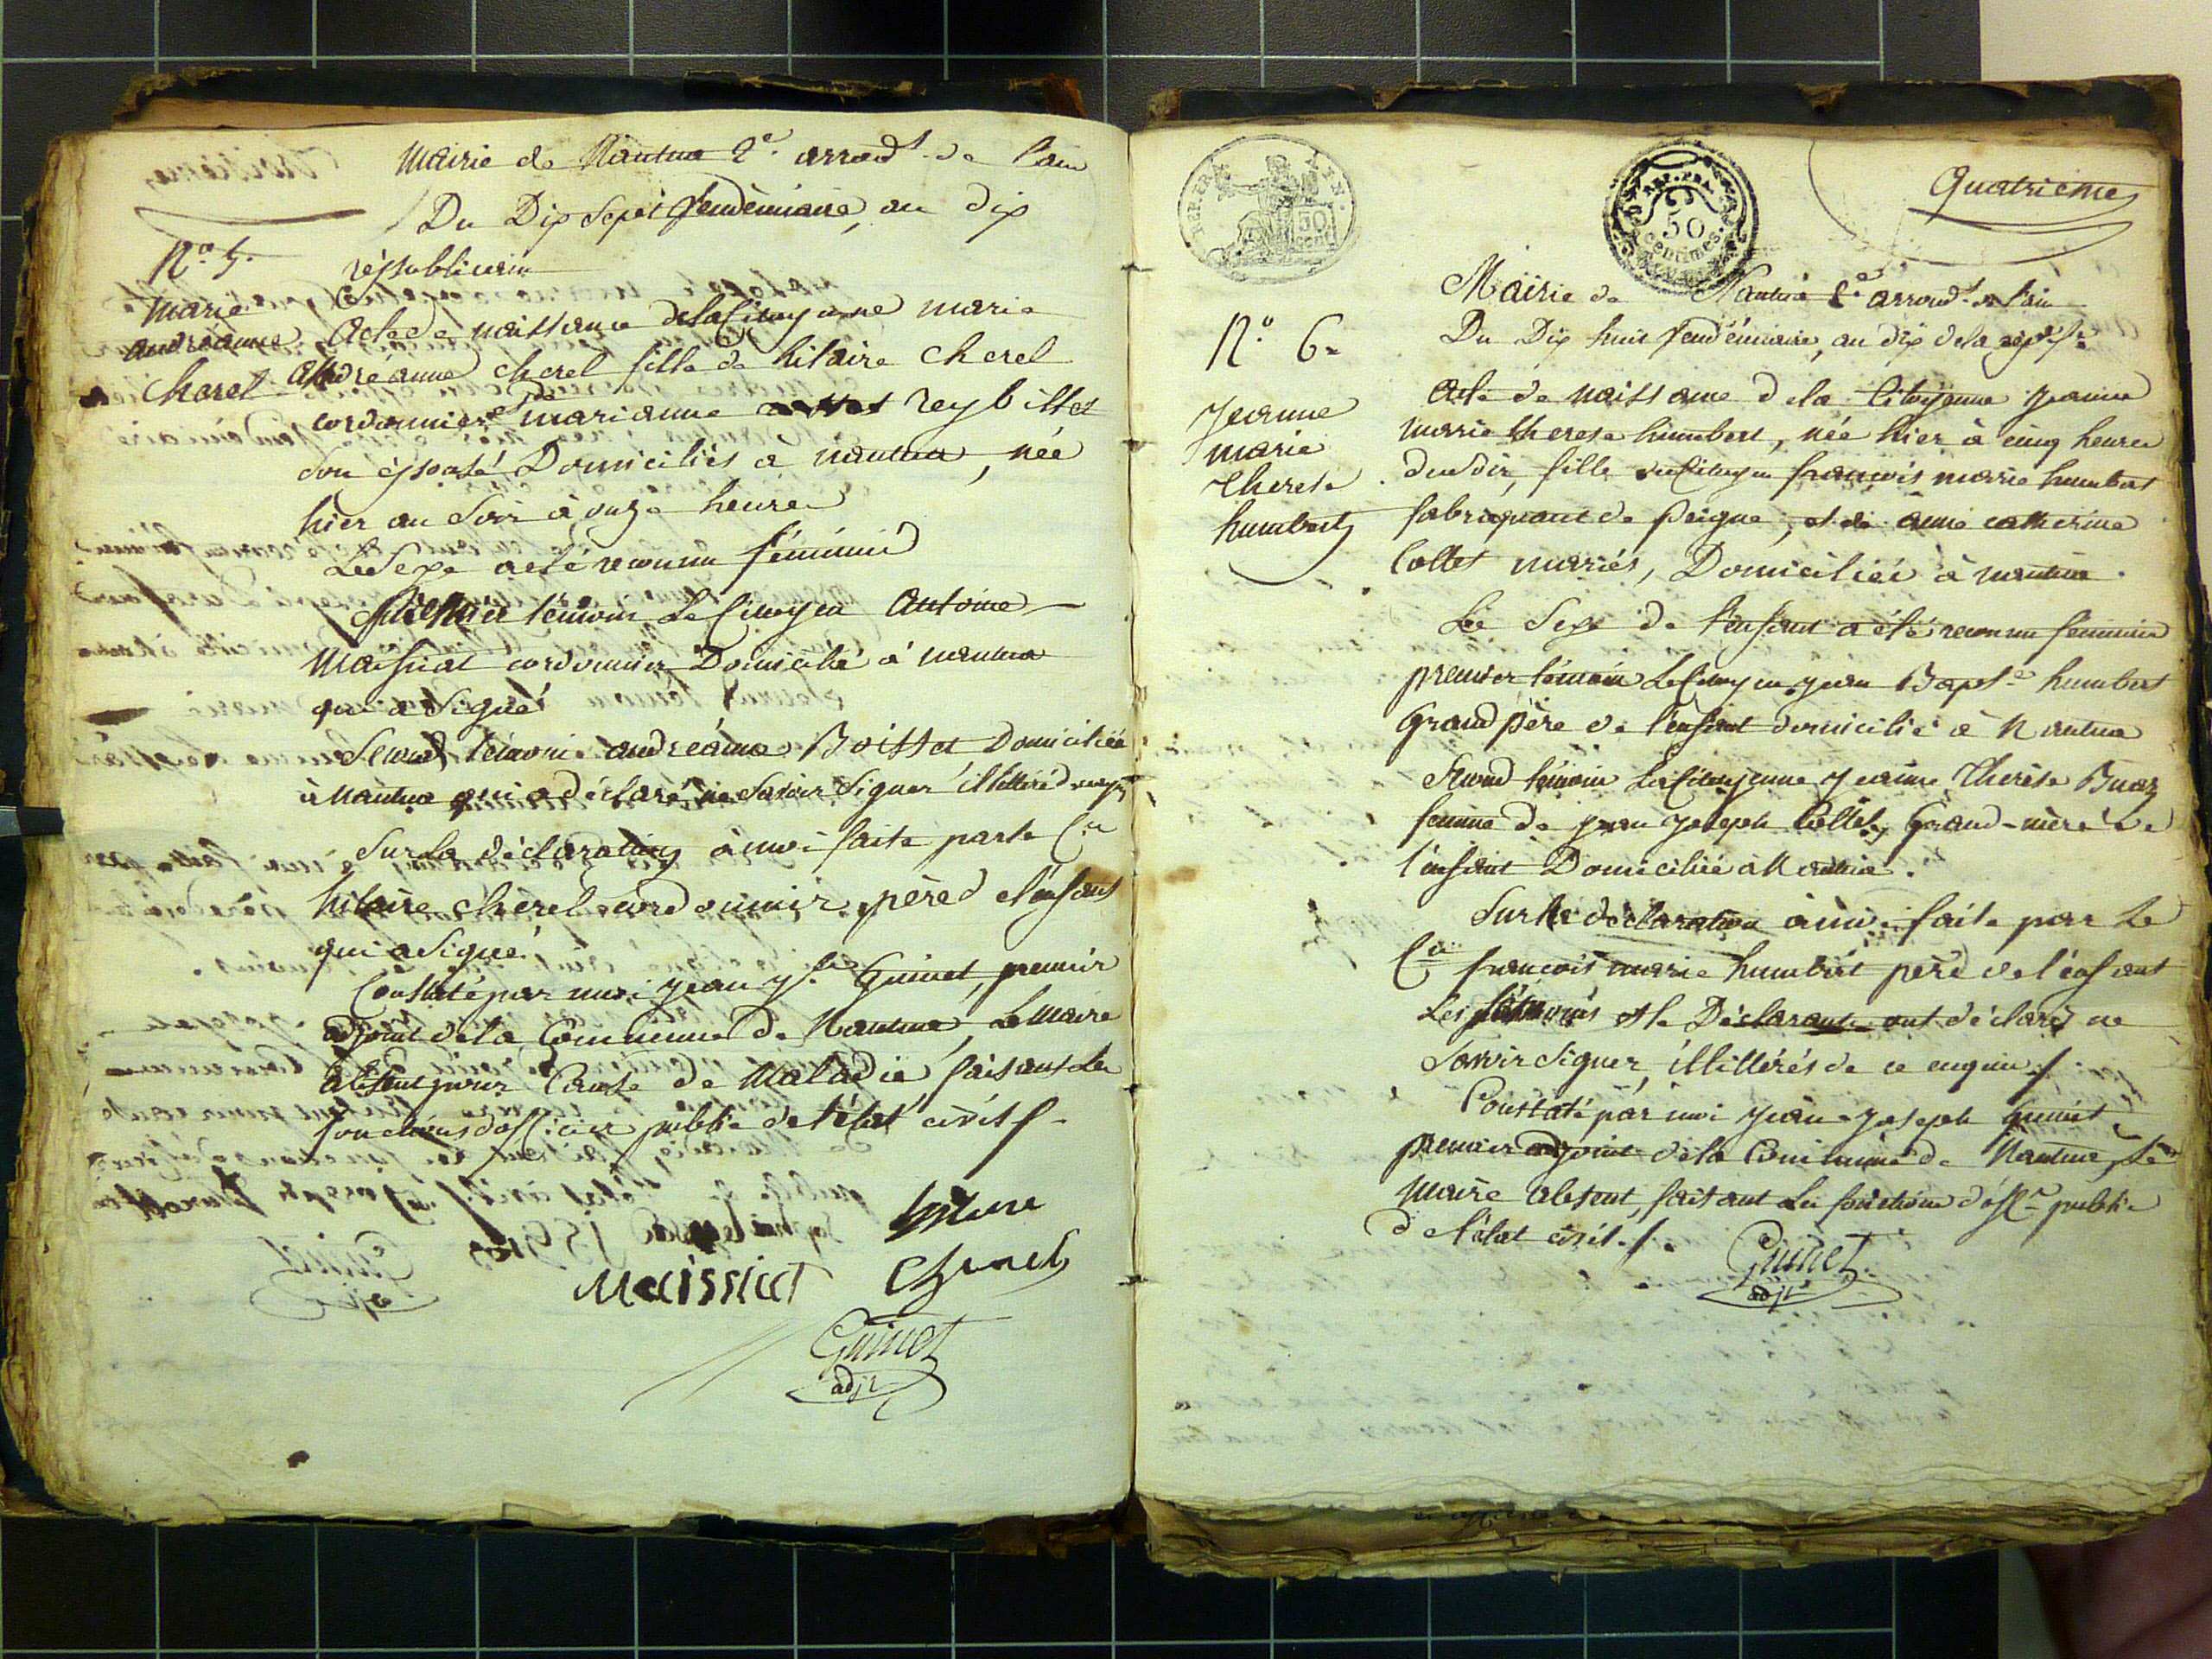 Mairie de Nantua 2e. arrondt. de l'ain
Du Dix Sept Vendémiaire, an dix
républicain
N.o 5.
Marie
andréanne
Cherel
Acte de naissance de la Citoyenne marie
Andréanne cherel fille de hilaire Cherel
cordonnier et de marianne reybillet
son épouse Domiciliés a nantua, née
hier au Soir à onze heures
Le Sexe a eté reconnu féminin
Premier témoin Le Citoyen Antoine
Maissiat cordonnier Domicilié à nantua
qui a Signé
Second témoin andréanne Boisset Domiciliée
à nantua qui a déclaré ne Savoir Signer illittéré
Sur la déclaration à moi faite par le Cen
hilaire cherel cordonnier père de l'enfant
qui a Signé.
Constaté par moi jean jh. Guinet, premier
adjoint de la Commune de Nantua, Le Maire
absent pour Cause de Maladie faisant Les
fonctions d'officier public de l'état civil
Maissiat
Cherel
Guinet
adjt
REP. FRA.
50
centimes
Quatrieme
Mairie de Nantua 2e. arrondt. de l'ain
Du Dix huit Vendémiaire, an dix de la
N.o 6.
Jeanne
marie
Therese
humbert
Acte de naissance de la Citoyenne jeanne
marie therese humbert, née hier à cinq heures
du Soir, fille du Citoyen françois marie humbert
fabriquant de peigne, et de anne catherine
Collet mariés, Domiciliés à nantua.
Le Sexe de l'enfant a été reconnu féminin
premier témoin Le Citoyen jean Bapte humbert
Grand père de l'enfant domicilié à Nantua
Second témoin La Citoyenne Jeanne Therèse
femme de jean joseph Collet, Grand-mère de
l'enfant Domiciliée à Nantua.
Sur la déclaration à moi faite par Le
Cen françois marie humbert père de l'enfant
Les témoins et le Déclarant ont déclarés ne
Savoir Signer, illittérés de ce enquis
Constaté par moi jean joseph Guinet
premier adjoint de la Commune de Nantua, Le
Maire absent, faisant Les fonctions d'offer public
de l'état civil.
Guinet
adjt